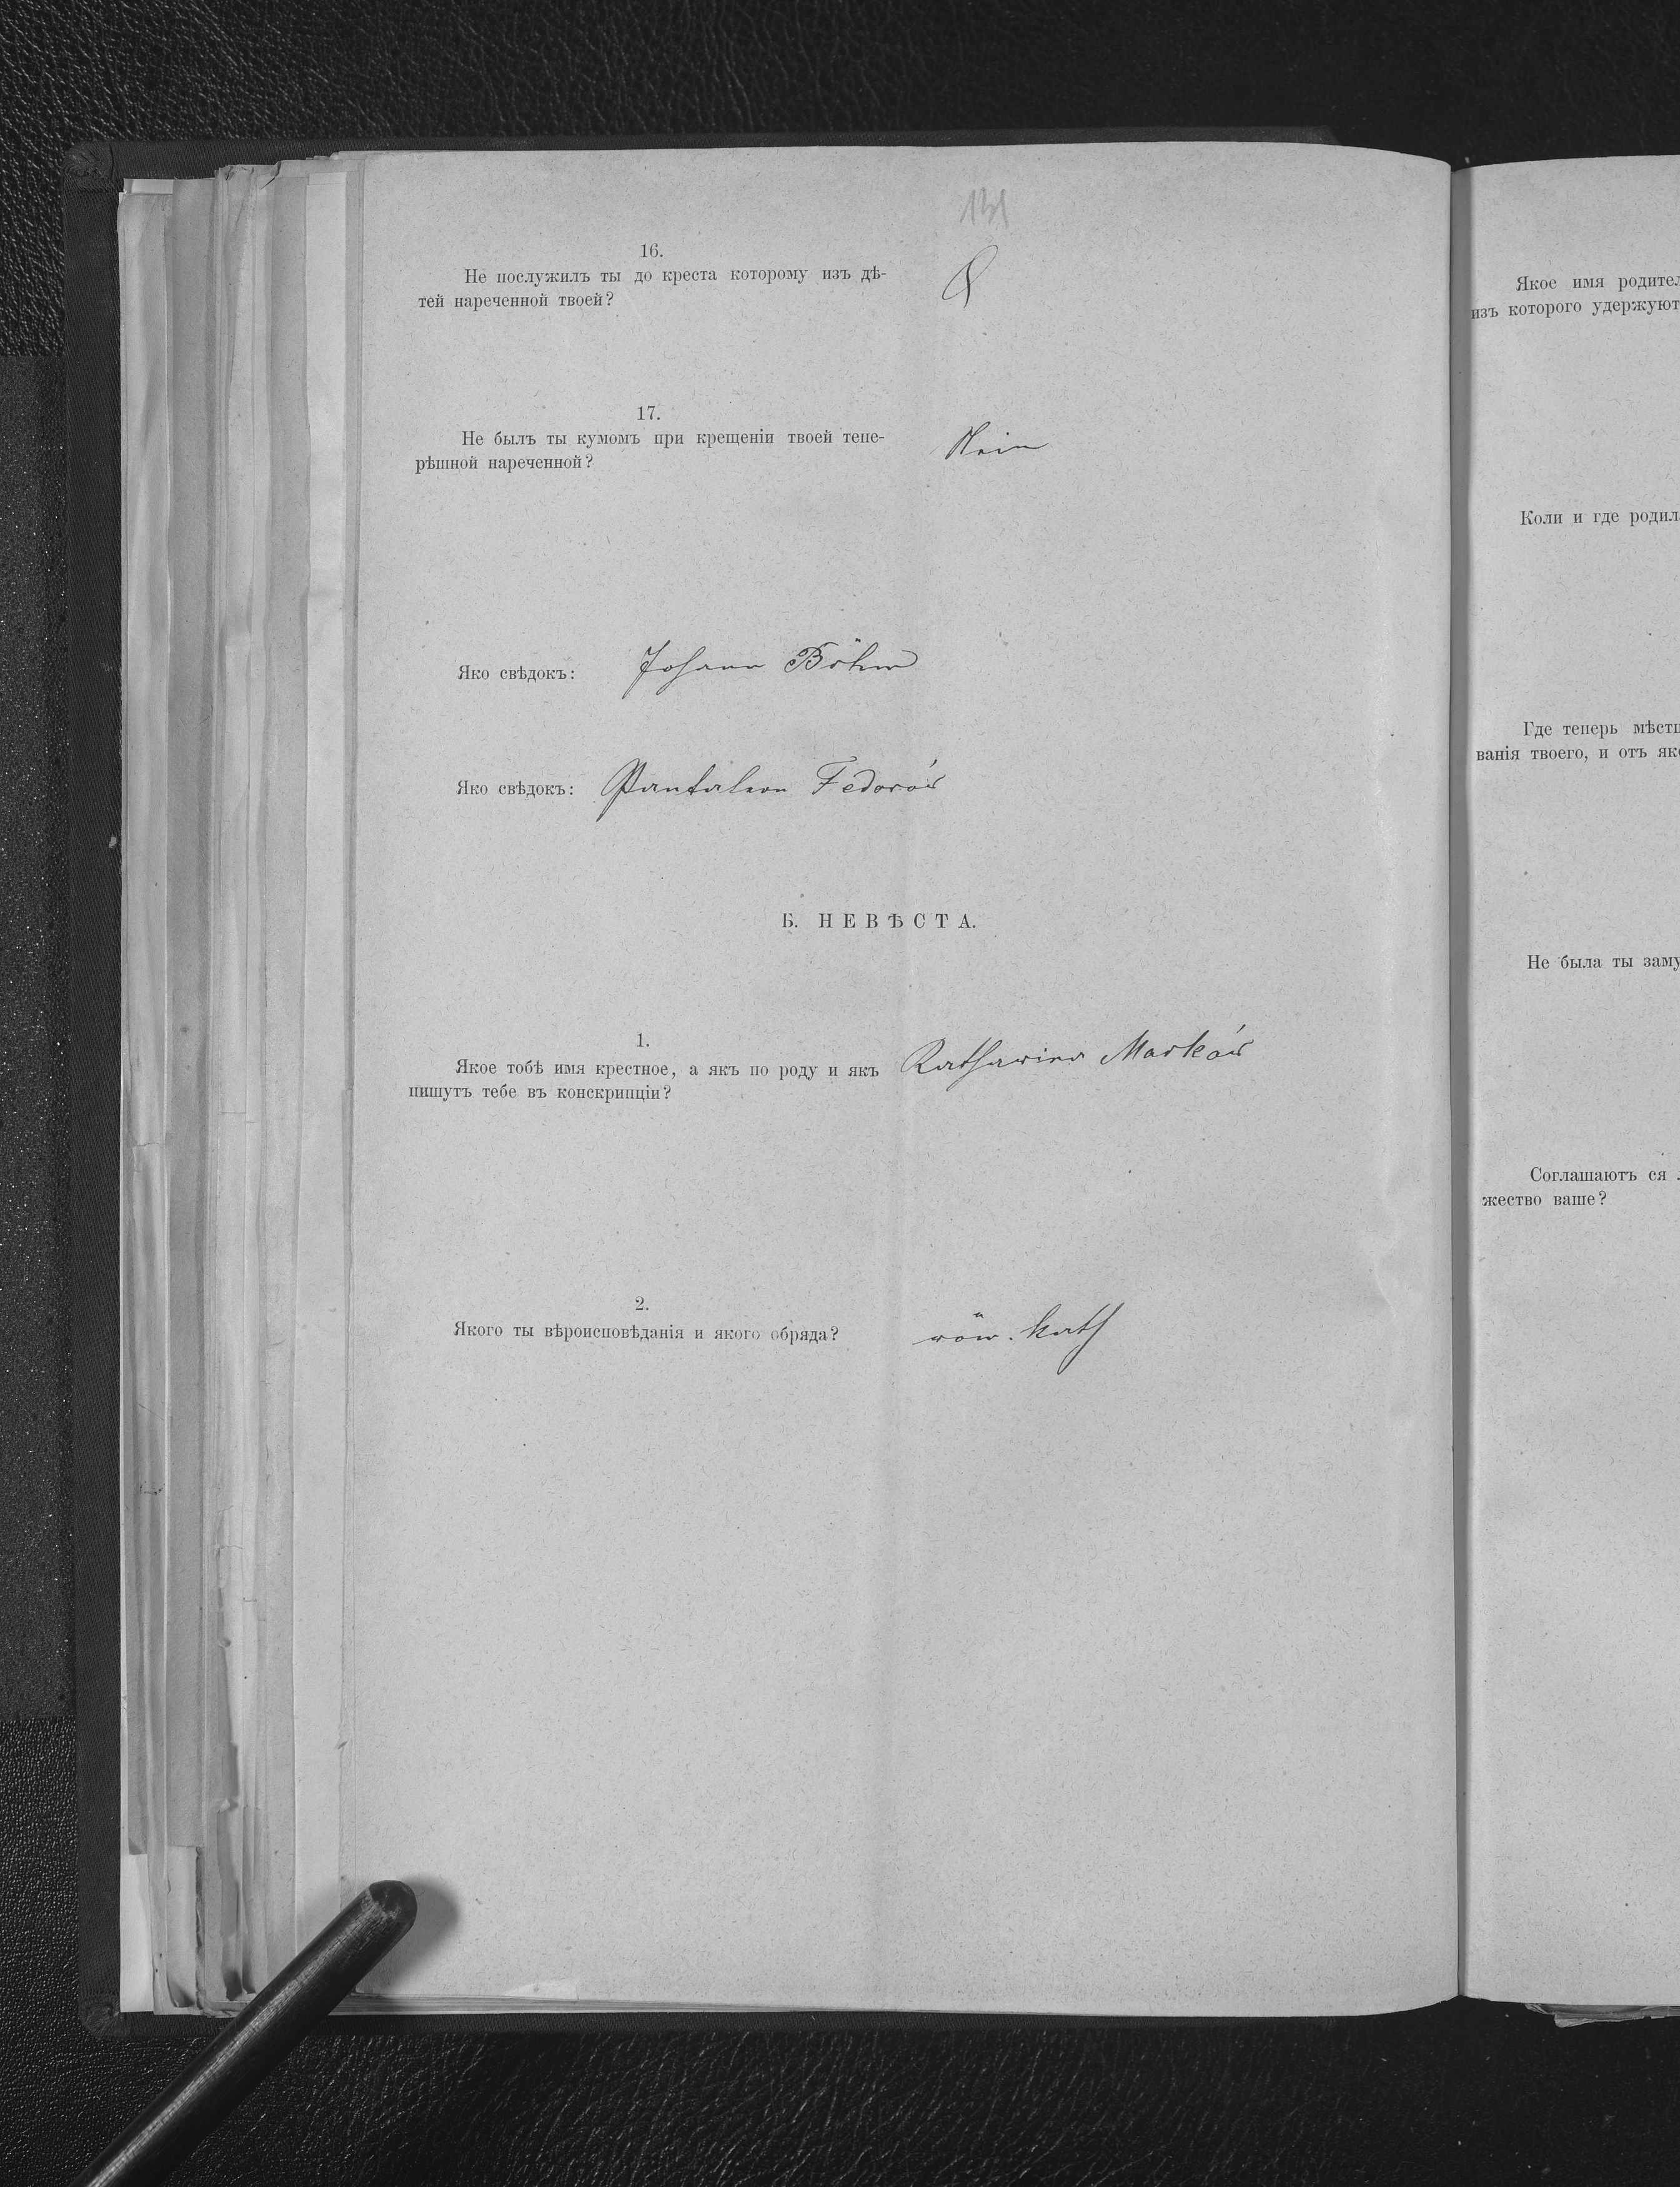 131
16.
Не послужилъ ты до креста которому изъ дѣ-
тей нареченной твоей?
17.
Не былъ ты кумомъ при крещеніи твоей тепе-
рѣшной нареченной?
Nein
Яко свѣдокъ: Johann Böhm
Яко свѣдокъ: Pantaleon Fedorów
Б. НЕВѢСТА.
1.
Якое тобѣ имя крестное, а якъ по роду и якъ
пишутъ тебе въ конскрипціи?
Katharina Marków
2.
Якого ты вѣроисповѣданія и якого обряда?
röm. kath
Якое имя родител
изъ которого удержуют
Коли и где родил
Где теперь мѣстц
ванія твоего, и отъ яко
Не была ты заму
Соглашаютъ ся
жество ваше?